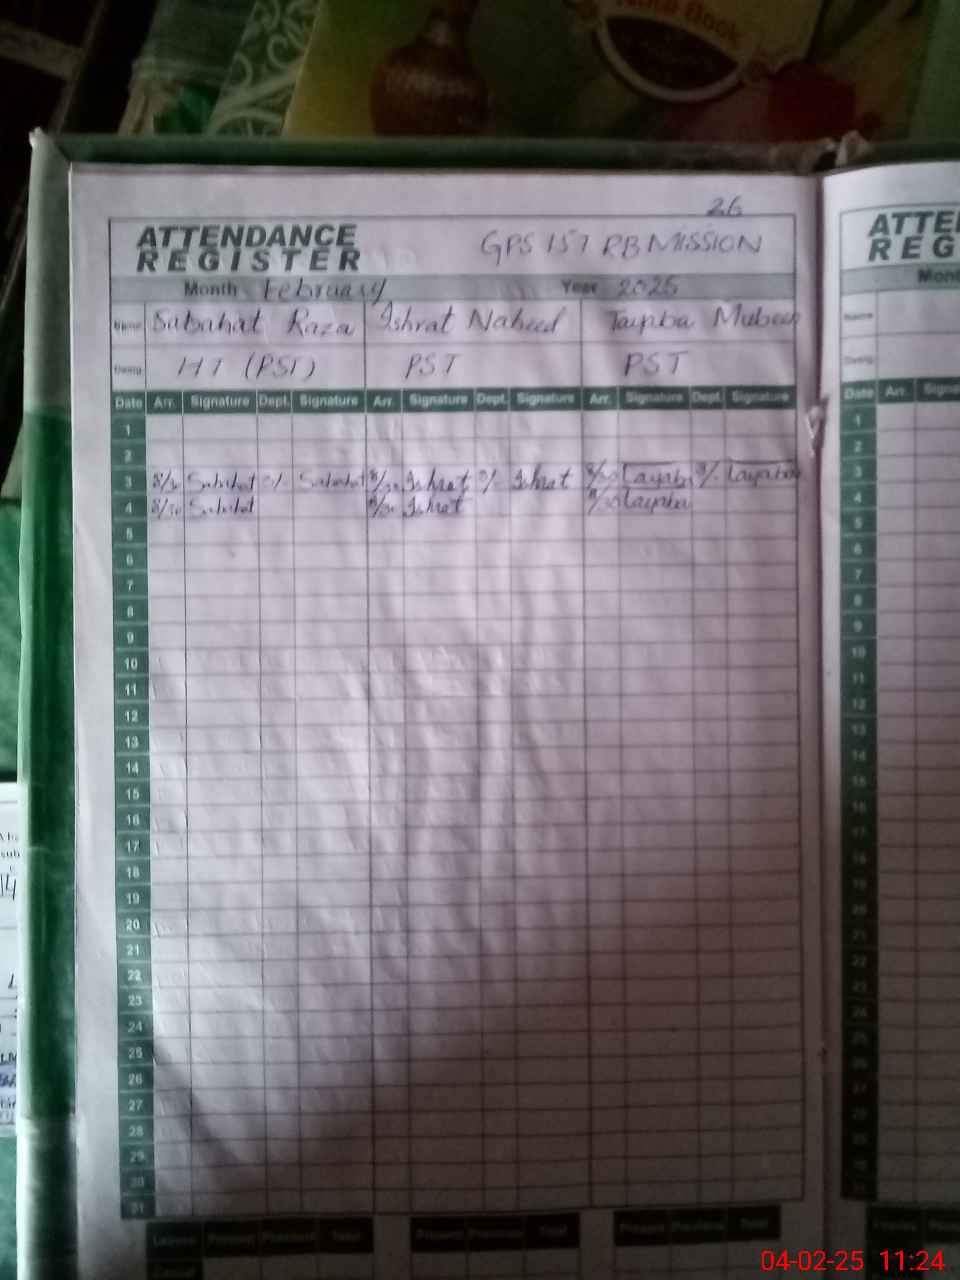 Note Book
26
ATTENDANCE REGISTER GPS 157 RB MISSION
Month February Year 2025
Name Sabahat Raza Ishrat Naheed Tayyba
Desig. HT (PST) PST PST
Date Arr. Signature Dept. Signature Arr. Signature Dept. Signature Arr. Signature Dept. Signature
1
2
3 Sabahat Sabahat Ishrat Ishrat Tayyba Tayyba
4 8/30 Sabahat 8/30 Ishrat 8/30 Tayyba
5
6
7
8
9
10
11
12
13
14
15
16
17
18
19
20
21
22
23
24
25
26
27
28
29
30
31
Leaves Present Previous Total Present Previous Total Present Previous Total
ATTE
REG
Mont
Name
Desig.
Date Arr. Signa
1
2
3
4
5
6
7
8
9
10
11
12
13
14
15
16
17
18
19
20
21
22
23
24
25
26
27
28
29
30
31
04-02-25 11:24